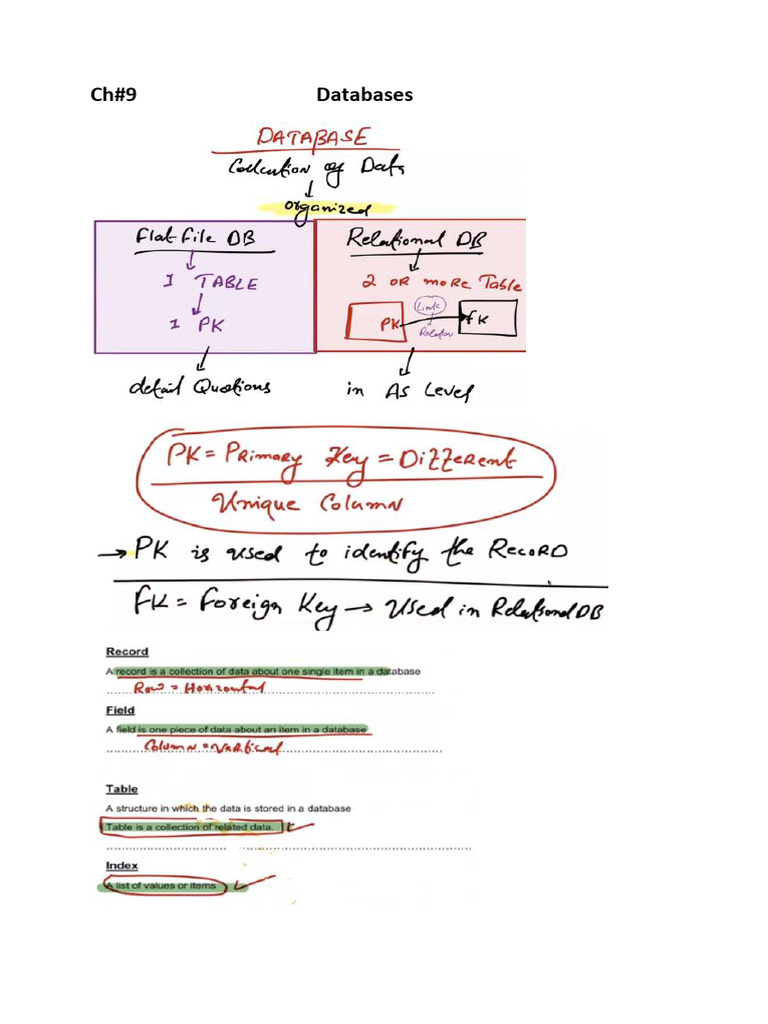 Ch#9 Databases
DATABASE
Collection of Data
organized
Flat-File DB
1 TABLE
1 PK
detail Questions
Relational DB
2 OR MORE Table
PK
Link
Relation
FK
in AS Level
PK = PRIMARY Key = Different
Unique Column
→ PK is used to identify the RECORD
FK = Foreign Key → Used in Relational DB
Record
A record is a collection of data about one single item in a database
Row = Horizontal
Field
A field is one piece of data about an item in a database
Column = Vertical
Table
A structure in which the data is stored in a database
Table is a collection of related data.
Index
A list of values or items